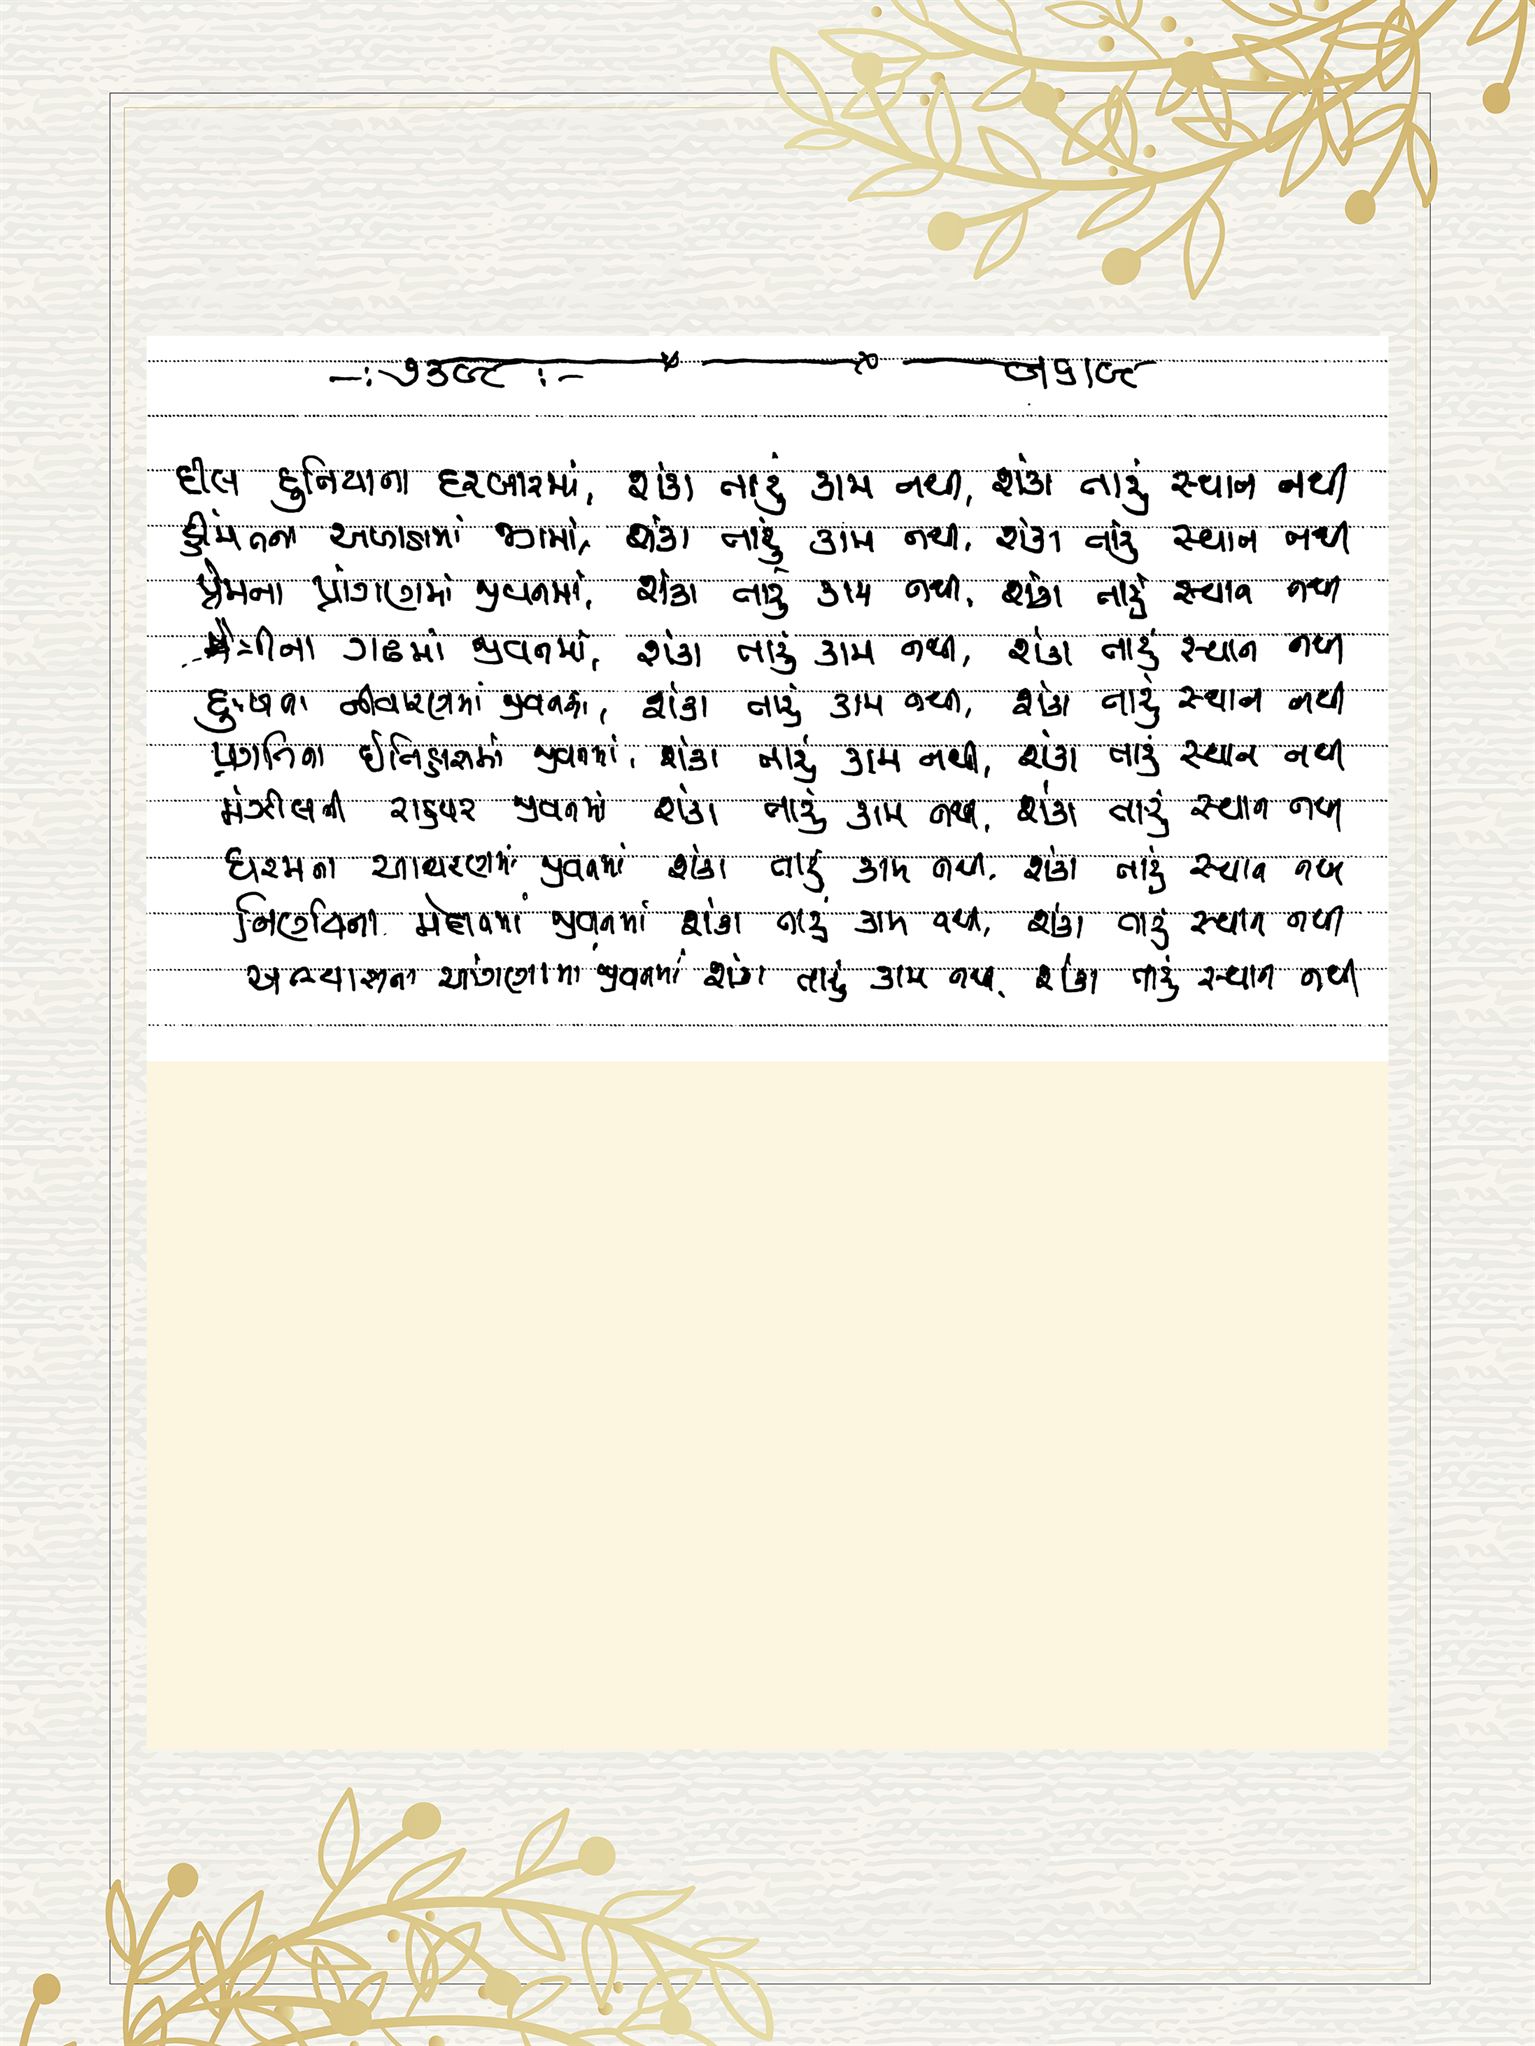 દીલ દુનિયાના દરબારમાં, શંકા તારું કામ નથી, શંકા તારું સ્થાન નથી
હીંમતના અખાડામાં જગમાં, શંકા તારું કામ નથી, શંકા તારું સ્થાન નથી
પ્રેમના પ્રાંગણમાં જીવનમાં, શંકા તારું કામ નથી, શંકા તારું સ્થાન નથી
મૈત્રીના ગઢમાં જીવનમાં, શંકા તારું કામ નથી, શંકા તારું સ્થાન નથી
દુઃખના નીવારણમાં જીવનમાં, શંકા તારું કામ નથી, શંકા તારું સ્થાન નથી
પ્રગતિના ઈતિહાસમાં જીવનમાં, શંકા તારું કામ નથી, શંકા તારું સ્થાન નથી
મંઝીલની રાહપર જીવનમાં શંકા તારું કામ નથી, શંકા તારું સ્થાન નથી
ધરમના આચરણમાં જીવનમાં શંકા તારું કામ નથી, શંકા તારું સ્થાન નથી
જીવનમાં શંકા તારું કામ નથી, શંકા તારું સ્થાન નથી
અભ્યાસના આંગણામાં જીવનમાં શંકા તારું કામ નથી, શંકા તારું સ્થાન નથી